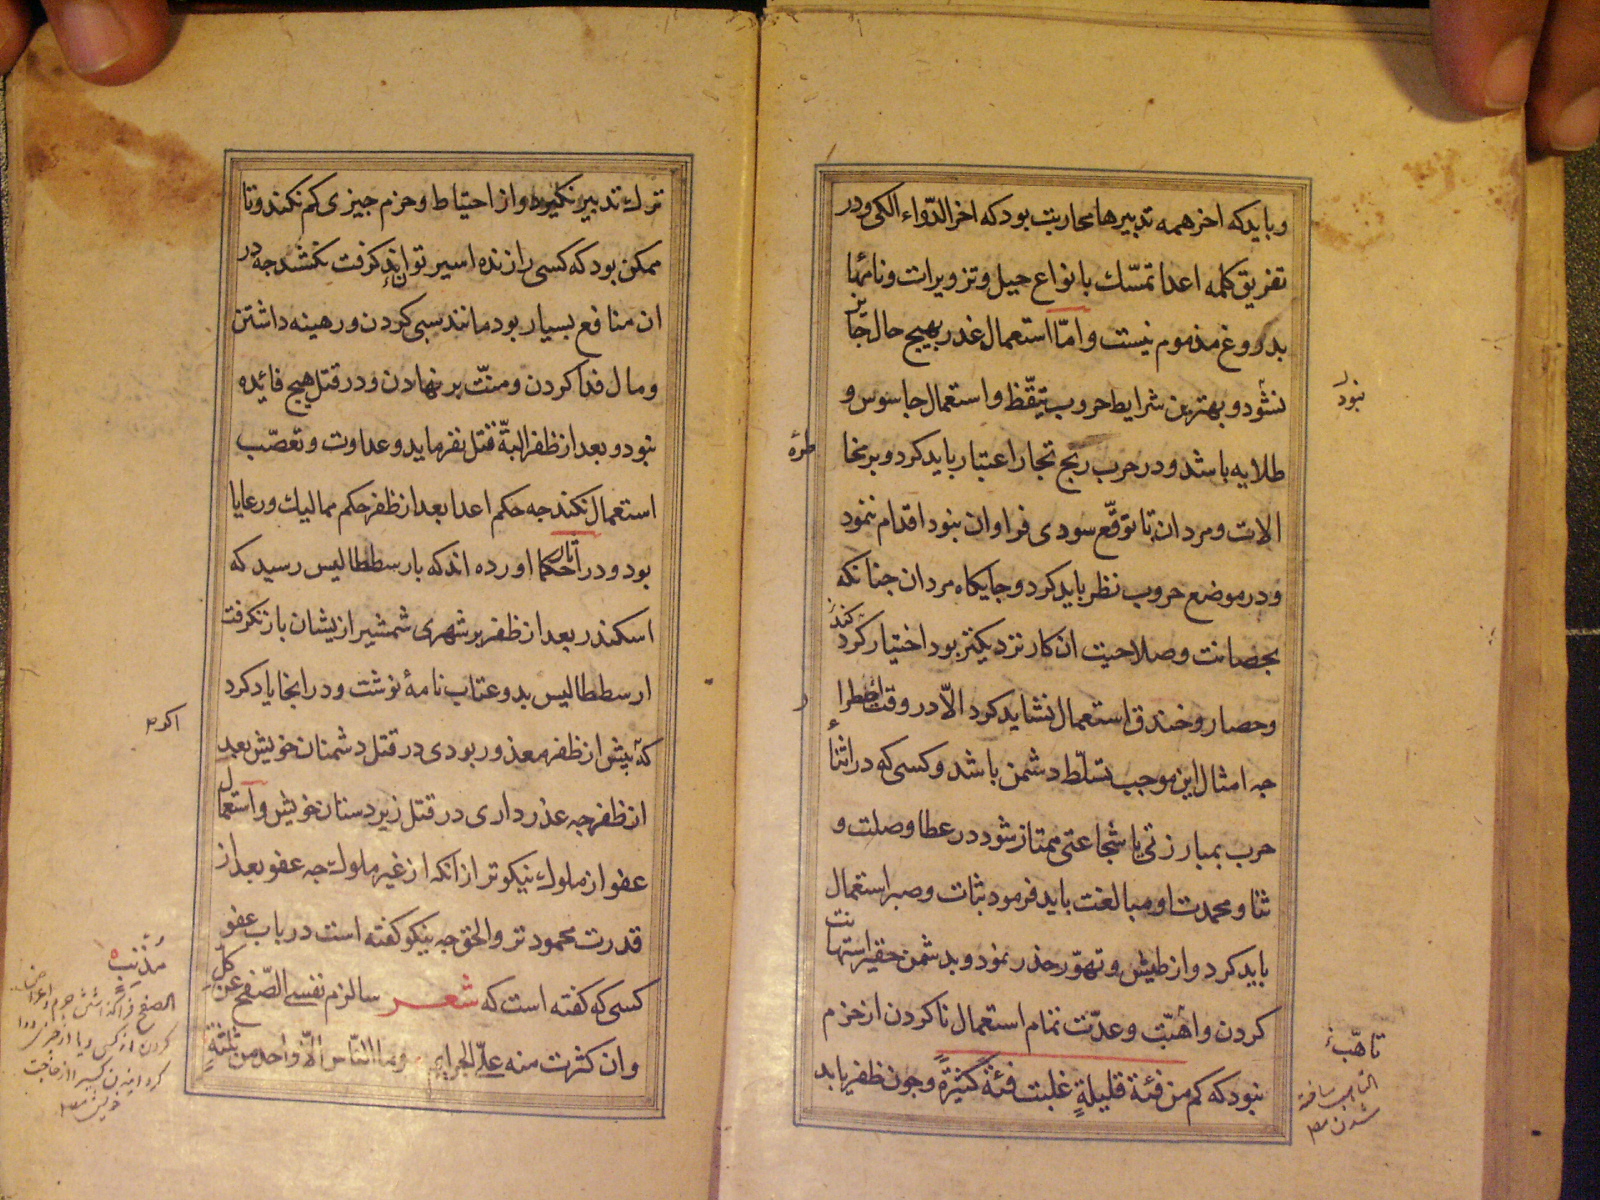 وبایدکه اخر همه تدبیرها محاربت بود که اخر الدّواء الکی و در
تفریق کلمه اعدا تمسّك بانواع حیل و تزویرات و نامها
بدروغ مذموم نیست و امّا استعمال غدر بهیچ حال جایز
نشود و بهترین شرایط حروب تیقّظ و استعمال جاسوس و
طلایه باشد و در حرب ربح تجار اعتبار باید کرد و بر مخا
الات و مردان تا توقّع سودی فراوان بنود اقدام ننمود
و در موضع حروب نظر باید کرد و جایکاه مردان جنانکه
بحصانت و صلاحیت ان کار نزدیکتر بود اختیار کرد
و حصار و خندق استعمال نشاید کرد الّا در وقت اضطرا
جه امثال این موجب تسلّط دشمن باشد و کسی که در اثناء
حرب بمبارزتی یا شجاعتی ممتاز شود در عطا و صلت و
ثنا و محمدت او مبالغت باید فرمود و ثبات و صبر استعمال
باید کرد و از طیش و تهوّر حذر نمود و بدشمن حقیر استهانت
کردن و اهبّت و عدّت تمام استعمال ناکردن از حزم
نبود که کم من فئة قلیلةٍ غلبت فئةً کثیرةً و جون ظفر یابد
نبود
طره
تاهّب
شدن ۱۲
ترك تدبیر نکیرد و از احتیاط و حزم جیزی کم نکند و تا
ممکن بود که کسی را زنده اسیر تواند کرفت نکشد جه در
ان منافع بسیار بود مانند سبی کردن و رهینه داشتن
و مال فدا کردن و منّت بر نهادن و در قتل هیچ فائده
نبود و بعد از ظفر البتّه قتل نفرماید و عداوت و تعصّب
استعمال نکند جه حکم اعدا بعد از ظفر حکم ممالیك و رعایا
بود و در آثار حکما اورده اند که بارسططالیس رسید که
اسکندر بعد از ظفر بر شهری شمشیر ازیشان باز نکرفت
ارسططالیس بدو عتاب نامهٔ نوشت و در انجا یاد کرد
که بیش از ظفر معذور بودی در قتل دشمنان خویش بعد
از ظفر جه عذر داری در قتل زیردستان خویش و استعمال
عفو از ملوك نیکوتر از انکه از غیر ملوك جه عفو بعد از
قدرت محمودتر و الحق جه نیکو کفته است در باب عفو
کسی که کفته است که شعر سالزم نفسی الصّفح عن کلّ
و ان کثرت منه علیّ الجرایم وما النّاس الّا واحد من ثلثةٍ
مذنب